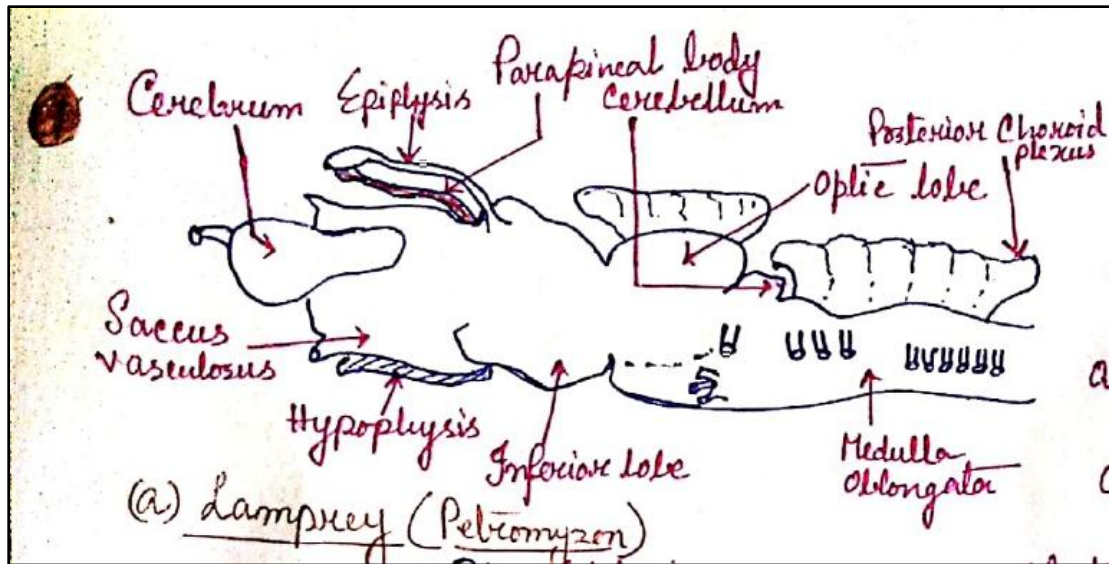 Cerebrum
Epiphysis
Parapineal body
Cerebellum
Posterior Choroid
plexus
Optic lobe
Saccus
vasculosus
Hypophysis
Inferior lobe
Medulla
Oblongata
(a) Lamprey (Petromyzon)